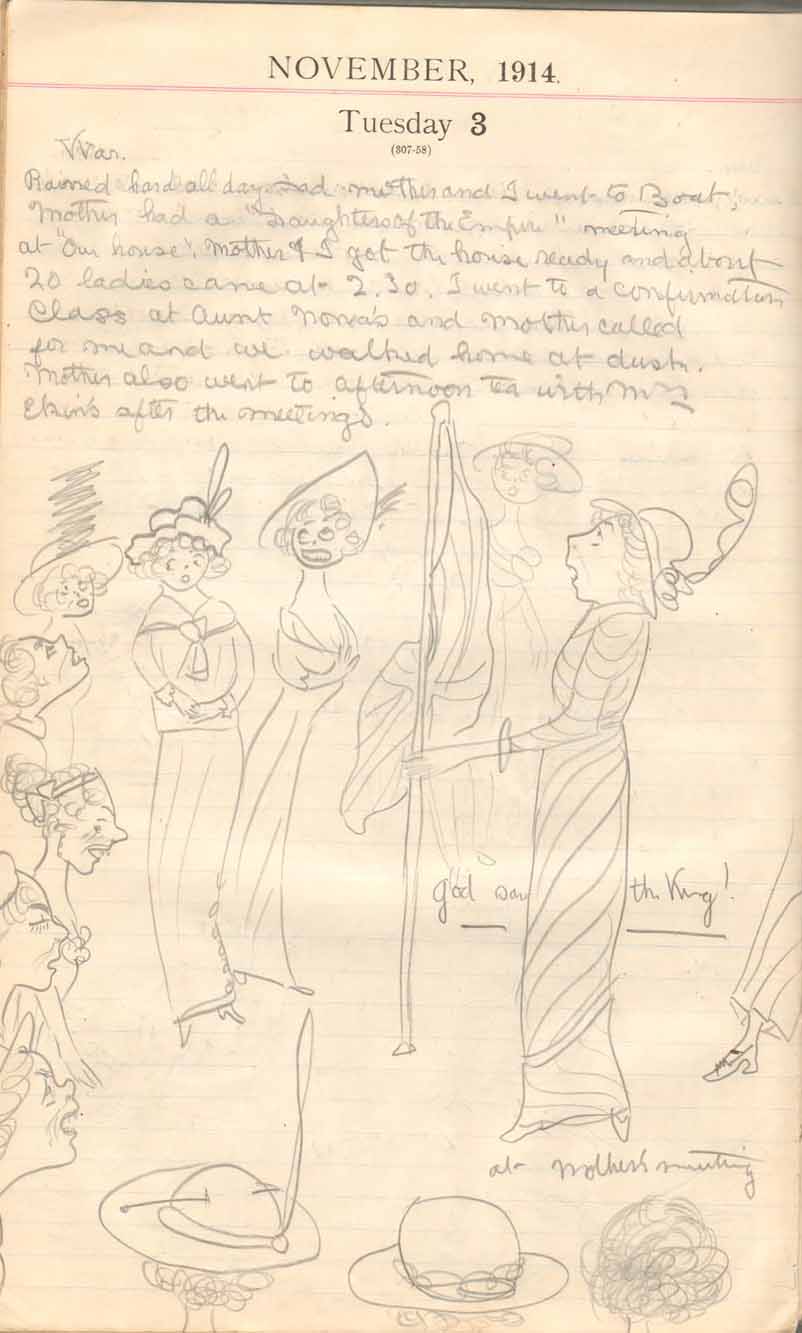 NOVEMBER, 1914.
Tuesday 3
(307-58)
War.
Rained hard all day. Dad mother and I went to Boat,
Mother had a "Daughters of the Empire" meeting
at "Our house". Mother & I got the house ready and about
20 ladies came at 2.30. I went to a confirmation
Class at Aunt Nona's and Mother called
for me and we walked home at dusk.
Mother also went to afternoon tea with Mrs
Ekin's after the meeting.
God save the King!
at Mother's meeting